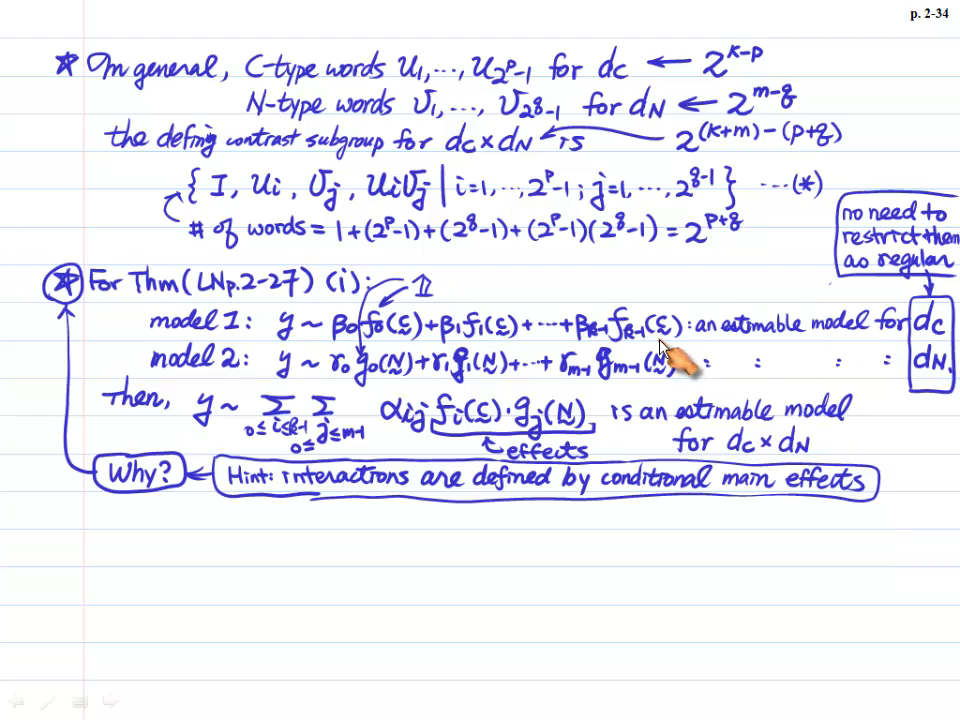 p. 2-34
* In general, C-type words u₁, ⋯, u_{2^p-1} for d_C ← 2^{k-p}
N-type words v₁, ⋯, v_{2^q-1} for d_N ← 2^{m-q}
the defing contrast subgroup for d_C × d_N is ← 2^{(k+m)-(p+q)}
{ I, u_i, v_j, u_i v_j | i=1, ⋯, 2^p-1; j=1, ⋯, 2^{q-1} } ⋯(*)
# of words = 1+(2^p-1)+(2^q-1)+(2^p-1)(2^q-1) = 2^{p+q}
no need to
restrict them
as regular
* For Thm (LNp.2-27) (i): 𝟙
model 1: y ~ β₀f₀(C)+β₁f₁(C)+⋯+β_{k-1}f_{k-1}(C): an estimable model for d_C
model 2: y ~ r₀g₀(N)+r₁g₁(N)+⋯+r_{m-1}g_{m-1}(N) : : : : d_N.
Then, y ~ Σ_{0≤i≤k-1} Σ_{0≤j≤m-1} α_{ij} f_i(C)·g_j(N) is an estimable model
effects for d_C × d_N
Why? ← Hint: interactions are defined by conditional main effects